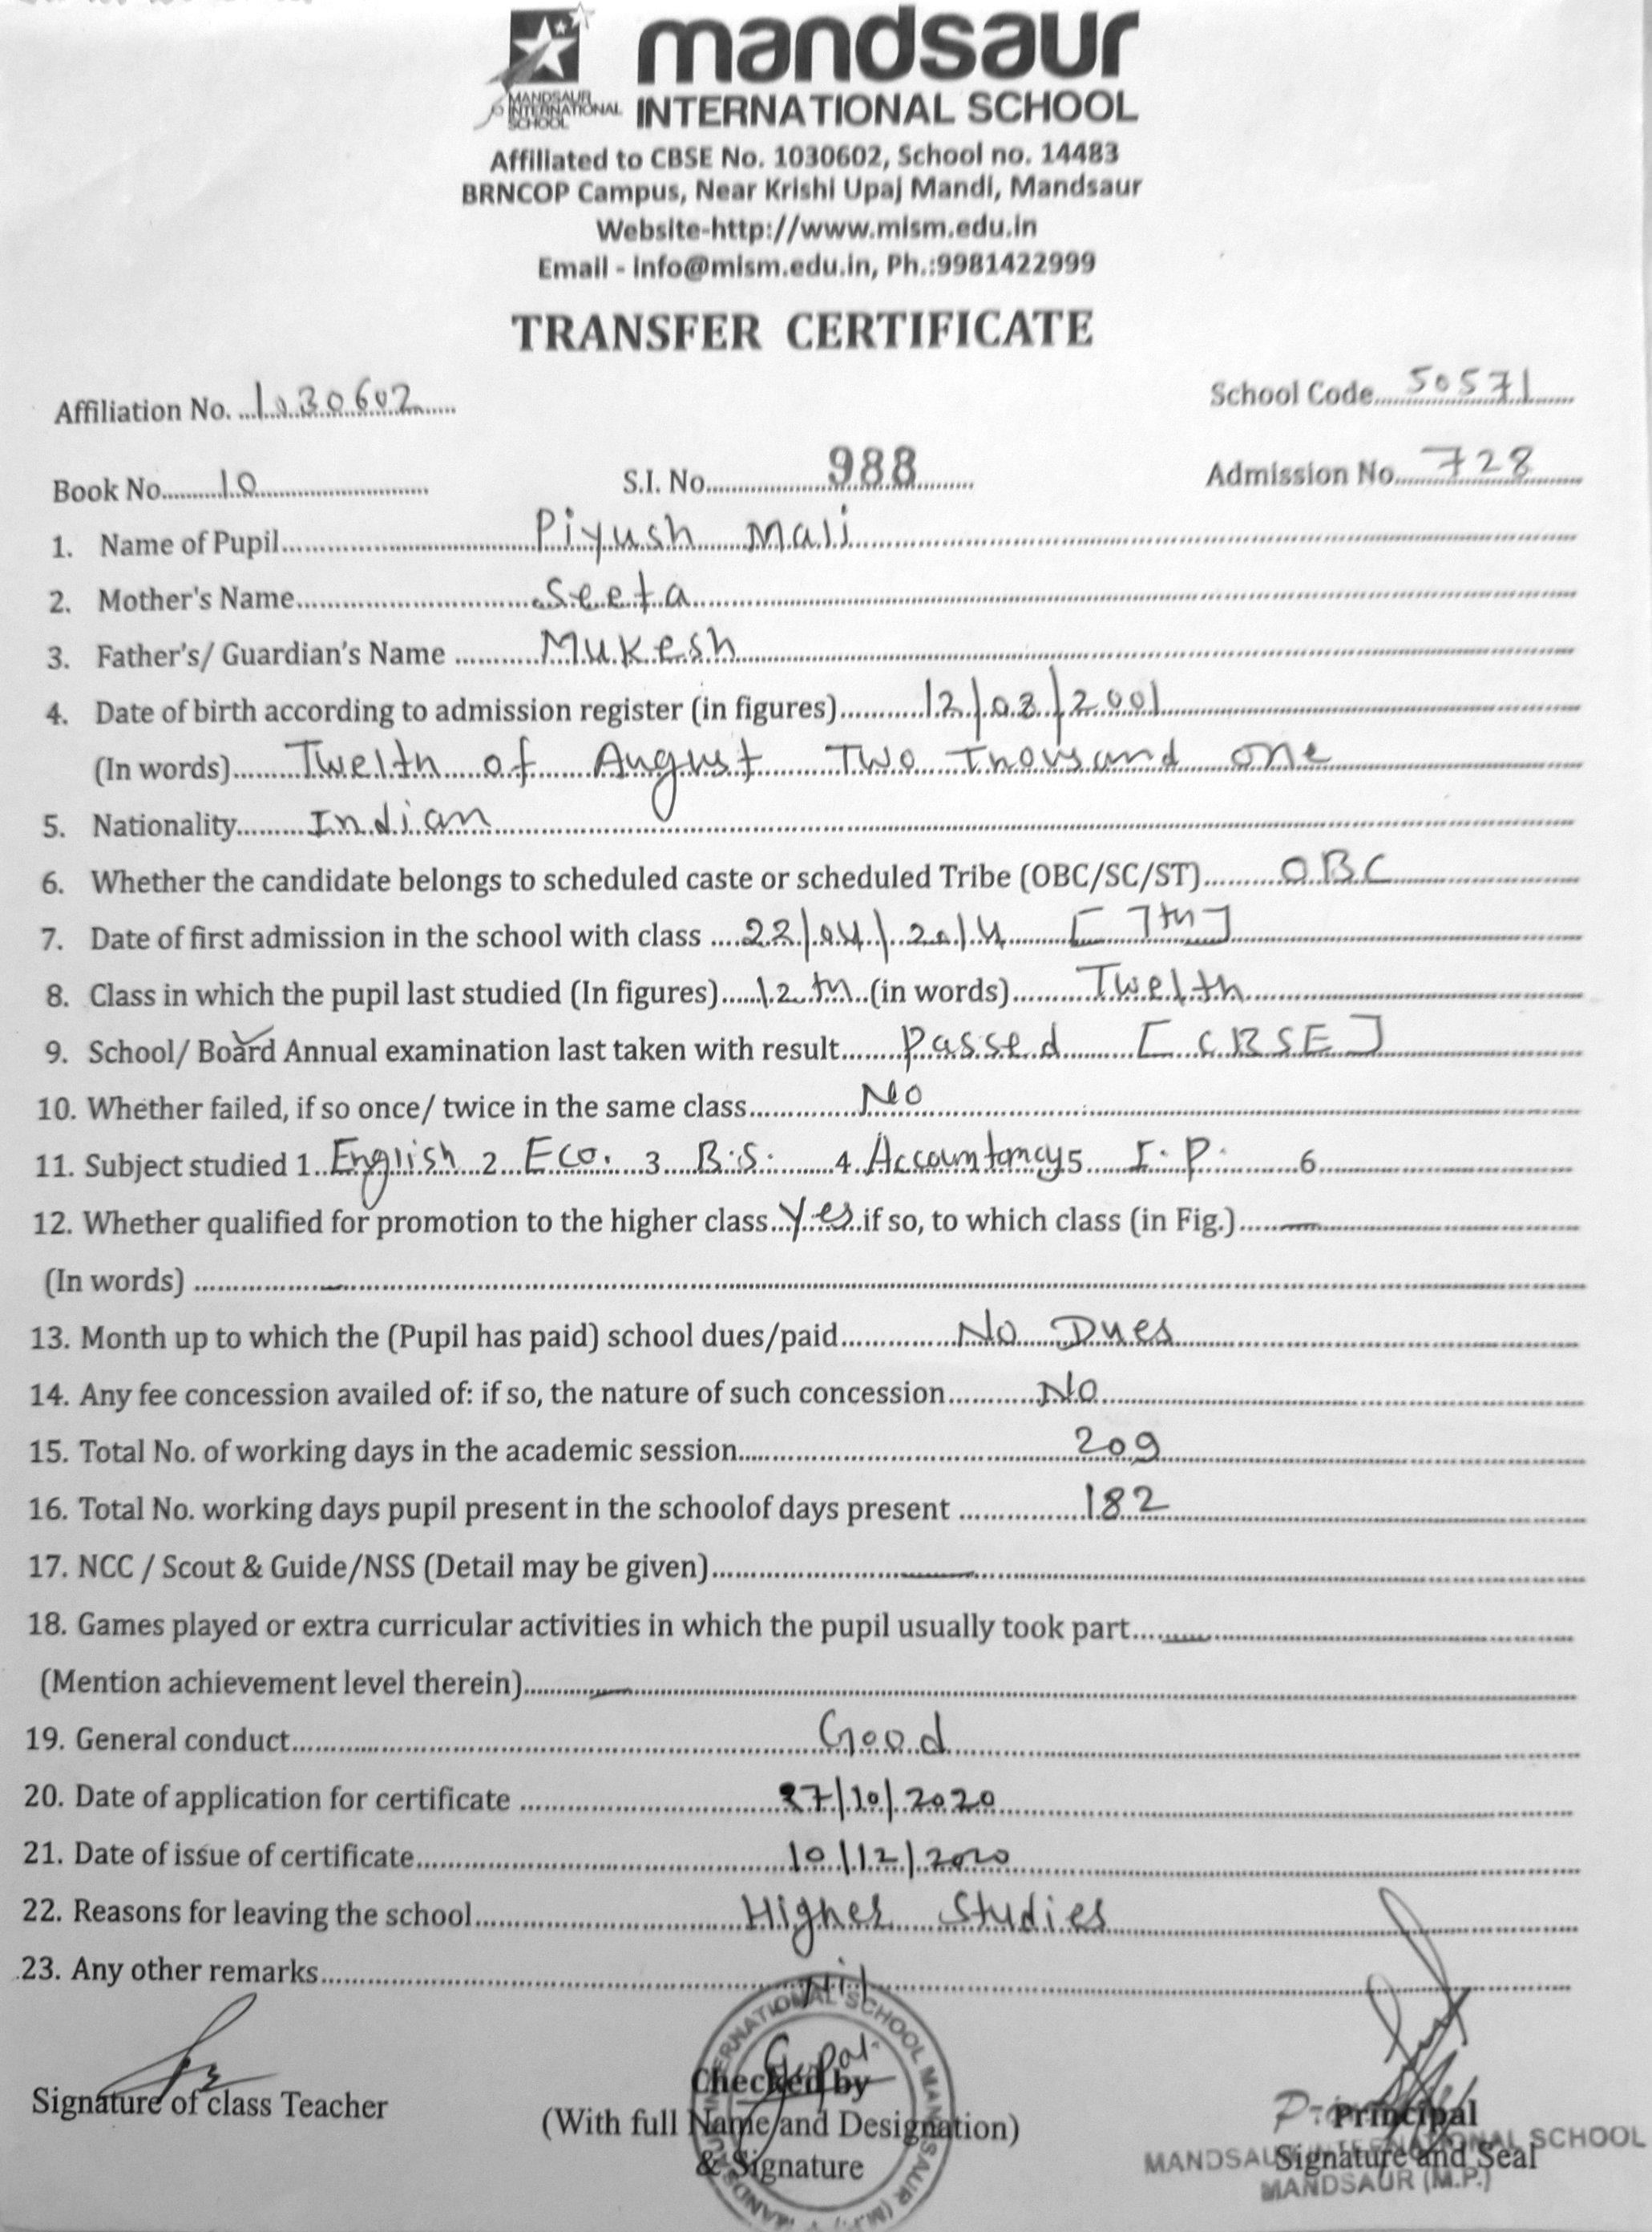 mandsaur
MANDSAUR INTERNATIONAL SCHOOL
INTERNATIONAL SCHOOL
Affiliated to CBSE No. 1030602, School no. 14483
BRNCOP Campus, Near Krishi Upaj Mandi, Mandsaur
Website-http://www.mism.edu.in
Email - info@mism.edu.in, Ph.:9981422999
TRANSFER CERTIFICATE
Affiliation No. 1030602 School Code 50571
Book No. 10 S.I. No. 988 Admission No. 728
1. Name of Pupil Piyush Mali
2. Mother's Name Seeta
3. Father's/ Guardian's Name Mukesh
4. Date of birth according to admission register (in figures) 12/08/2001
(In words) Twelth of August Two Thousand one
5. Nationality Indian
6. Whether the candidate belongs to scheduled caste or scheduled Tribe (OBC/SC/ST) OBC
7. Date of first admission in the school with class 22/04/2014 [7th]
8. Class in which the pupil last studied (In figures) 12th (in words) Twelth
9. School/ Board Annual examination last taken with result Passed [CBSE]
10. Whether failed, if so once/ twice in the same class No
11. Subject studied 1 English 2 Eco. 3 B.S. 4 Accountancy 5 I.P. 6
12. Whether qualified for promotion to the higher class Yes if so, to which class (in Fig.) —
(In words) —
13. Month up to which the (Pupil has paid) school dues/paid No Dues
14. Any fee concession availed of: if so, the nature of such concession No
15. Total No. of working days in the academic session 209
16. Total No. working days pupil present in the schoolof days present 182
17. NCC / Scout & Guide/NSS (Detail may be given) —
18. Games played or extra curricular activities in which the pupil usually took part —
(Mention achievement level therein) —
19. General conduct Good
20. Date of application for certificate 27/10/2020
21. Date of issue of certificate 10/12/2020
22. Reasons for leaving the school Higher Studies
23. Any other remarks Nil
Signature of class Teacher
Checked by
(With full Name and Designation)
& Signature
Principal
Signature and Seal
Principal
MANDSAUR INTERNATIONAL SCHOOL
MANDSAUR (M.P.)
MANDSAUR INTERNATIONAL SCHOOL MANDSAUR (M.P.)